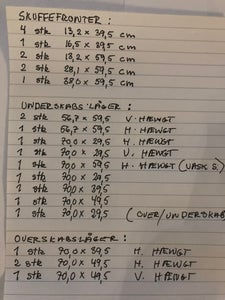 SKUFFEFRONTER :
4 stk 13,2 x 39,5 cm
1 stk 16,5 x 39,5 cm
2 stk 13,2 x 59,5 cm
2 stk 28,1 x 59,5 cm
1 stk 38,0 x 59,5 cm
UNDERSKABSLÅGER :
2 stk 56,7 x 59,5 V. HÆNGT
1 stk 56,7 x 59,5 H. HÆNGT
1 stk 70,0 x 29,5 H. HÆNGT
1 stk 70,0 x 29,5 V. HÆNGT
1 stk 70,0 x 59,5 H. HÆNGT (VASK S.)
1 stk 70,0 x 59,5
1 stk 70,0 x 39,5
1 stk 70,0 x 49,5
1 stk 70,0 x 29,5 (OVER/UNDERSKAB
OVERSKABSLÅGER :
1 stk 70,0 x 39,5 H. HÆNGT
2 stk 70,0 x 49,5 H. HÆNGT
1 stk 70,0 x 49,5 V. HÆNGT